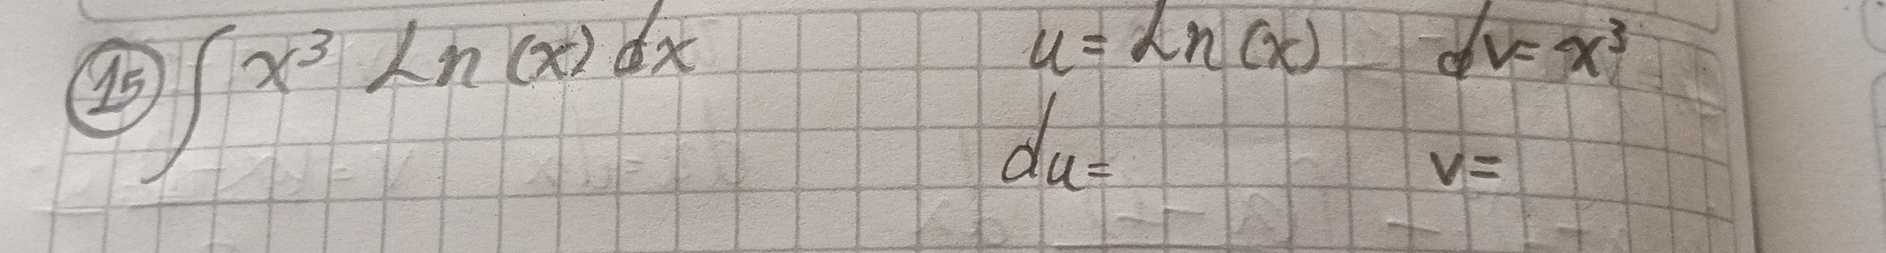 15 ∫ x³ Ln (x) dx u = Ln (x) dv = x³
du = v =